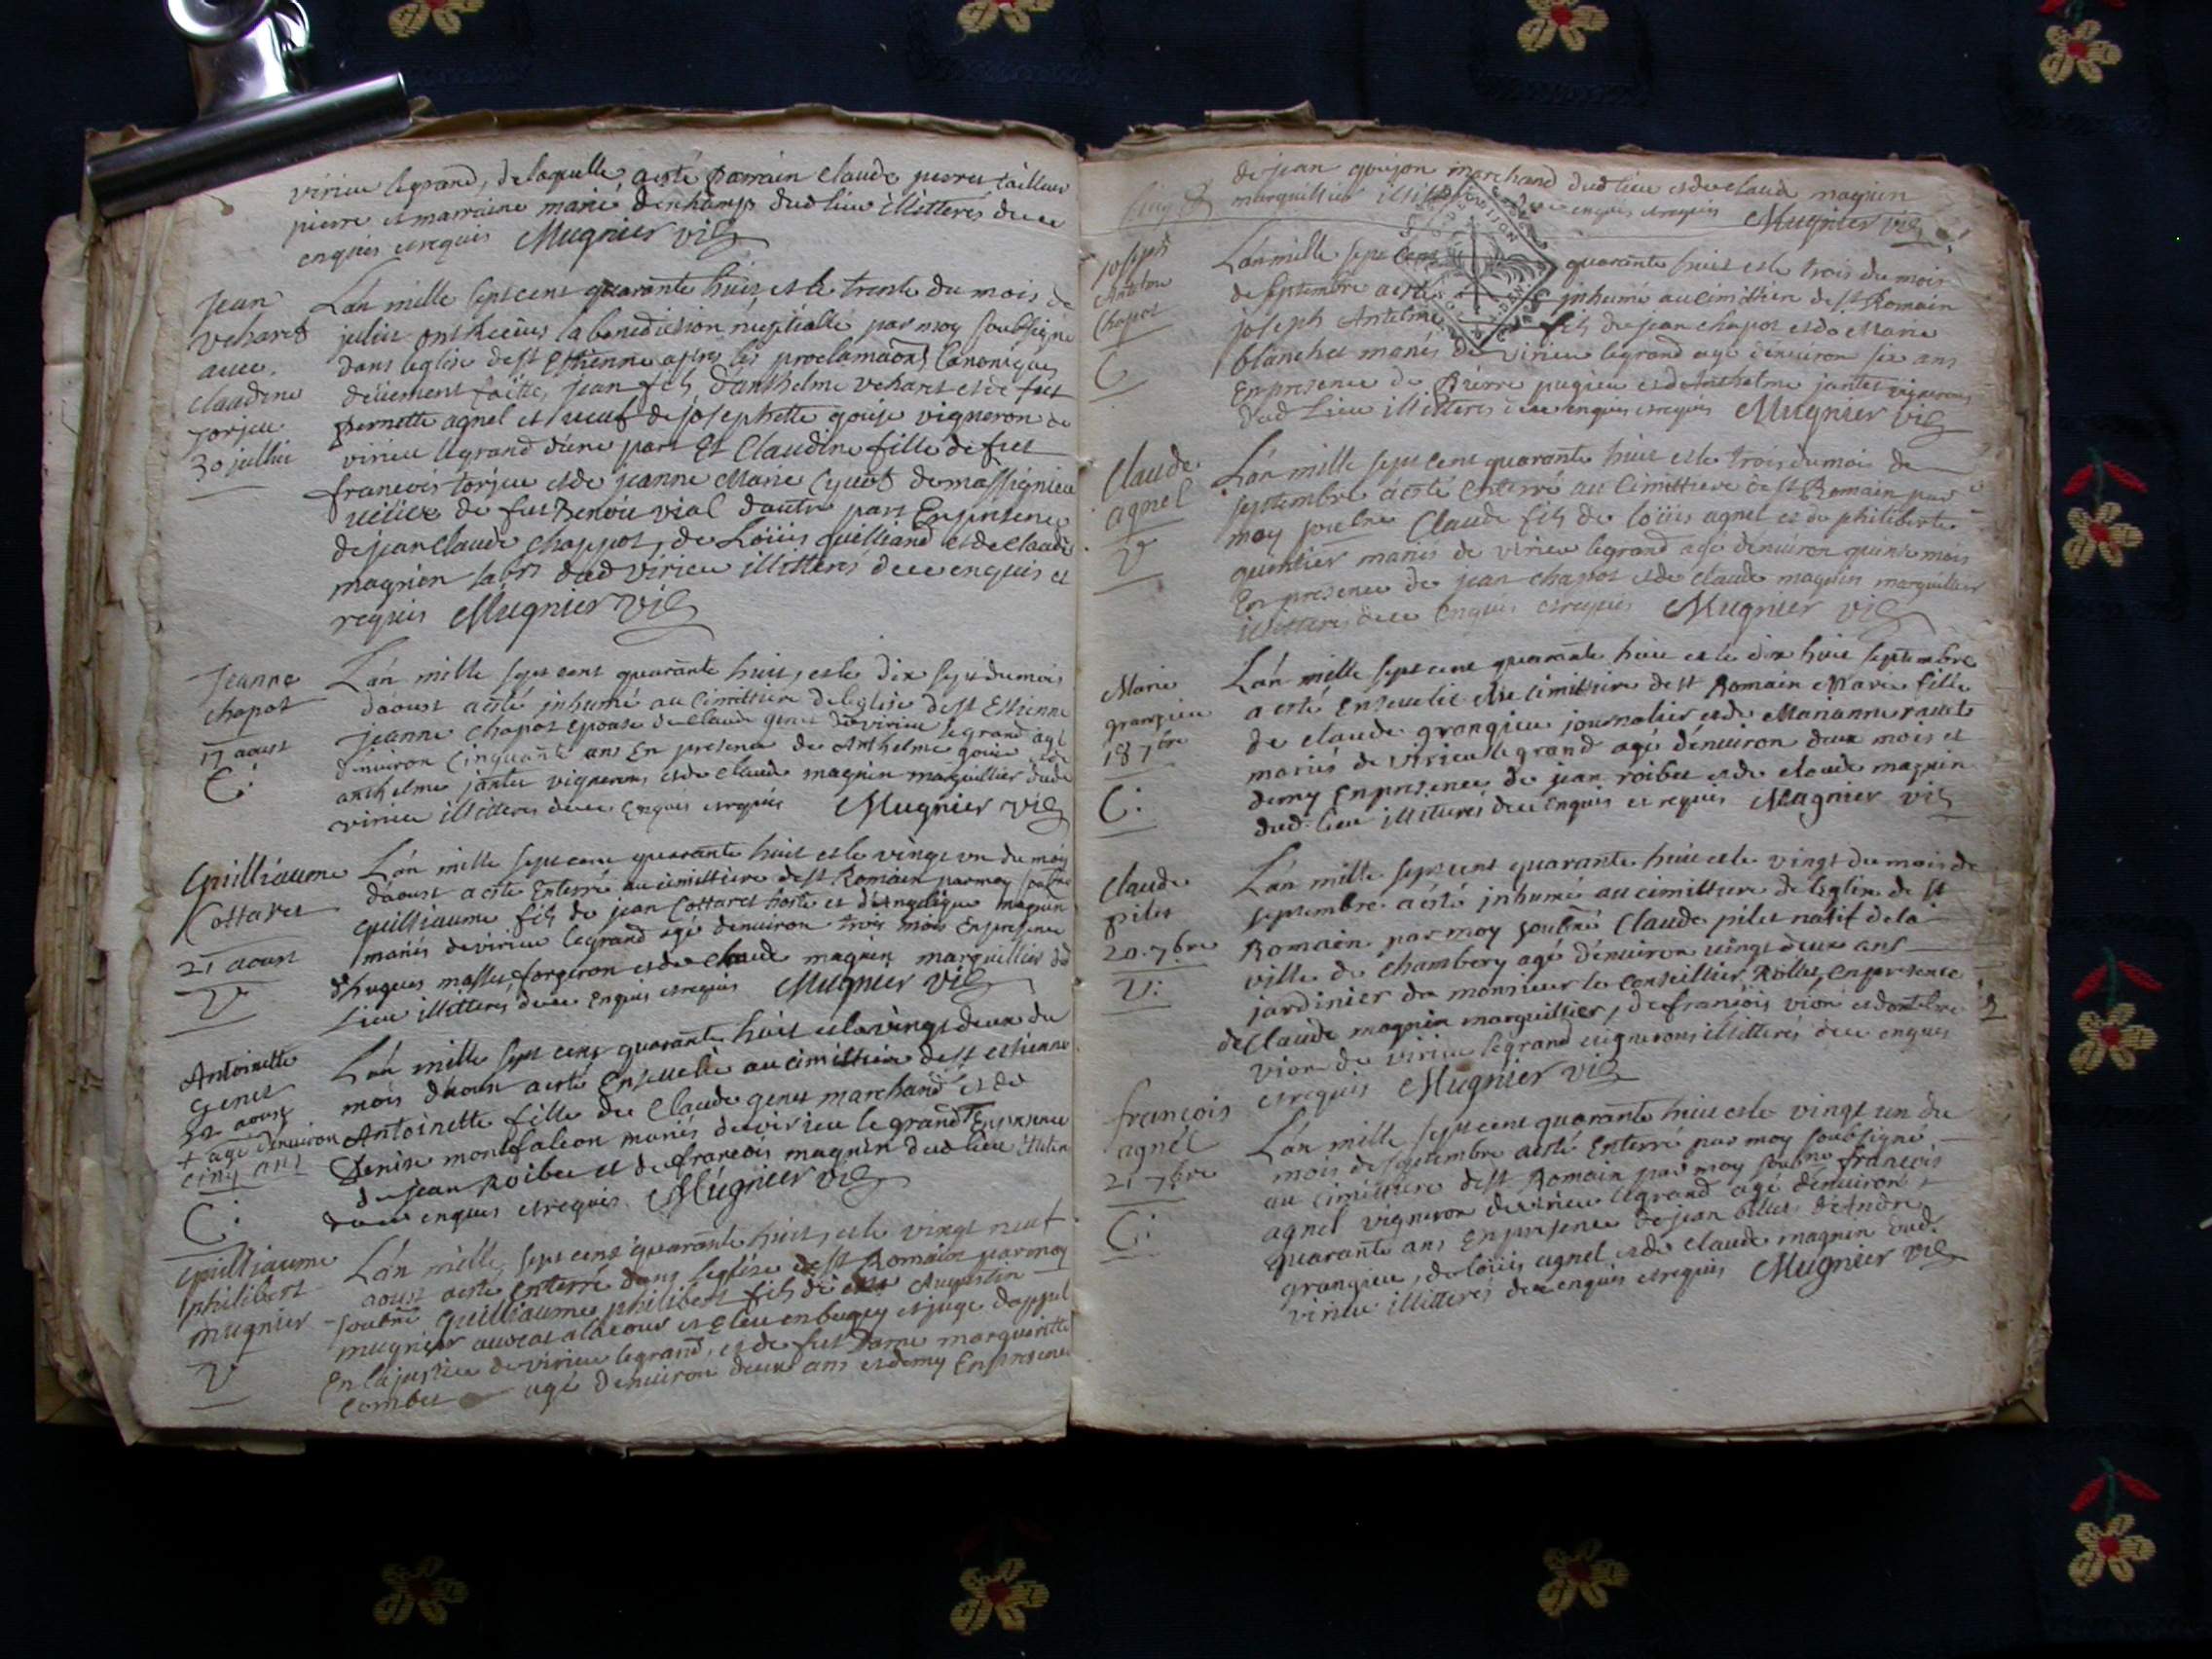 virieu legrand, delaquelle a esté parrain Claude peret tailleur
pierre et marraine marie dud lieu illitteres de ce
enquis et requis Mugnier vic
Jean
vchard
avec
claudine
torjeu
30 juillet
L'an mille sept cent quarante huit, et le trente du mois de
juillet ont Receus la benediction nuptialle par moy soubsigné
dans leglise de st Estienne apres les proclamaons Canoniques
deüement faitte, jean fils d'anthelme vchard et de fut
pernette agnel et veuf de josephette goüje vigneron de
virieu legrand d'une part Et Claudine fille de fut
francois torjeu et de jeanne Marie de massignieu
veüve de fut Benoit vial dautre part En presence
de jean Claude chappot, de Loüis quilliand et de claude
magnin dud virieu illitteres de ce enquis et
requis Mugnier vic
Jeanne
chapot
17 aoust
C:
L'an mille sept cent quarante huit, et le dix sept du mois
daoust a esté inhumé au cimittiere deleglise de st Estienne
jeanne chapot epouse de claude genet de virieu legrand agé
denviron cinquante ans En presence de Anthelme goüie et de
anthelme jantet vignerons et de claude magnin marguillier dud
virieu illitteres de ce enquis et requis Mugnier vic
Guilliaume
Cottaret
21 aoust
V
L'an mille sept cent quarante huit et le vingt un du mois
daoust a esté Enterré au cimittiere de st Romain par moy soubne
guilliaume fils de jean Cottaret hoste et d'angelique magnin
mariés de virieu legrand agé denviron trois mois En presence
d'hugues masset forgeron et de claude magnin marguillier dud
Lieu illitteres de ce enquis et requis Mugnier vic
Antoinette
genet
22 aoust
+ agé denviron
cinq ans
C:
L'an mille sept cent quarante huit et le vingt deux du
mois daoust a esté Ensevelie au cimittiere de st estienne
Antoinette fille de Claude genet marchand et de
Denise montfalcon mariés de virieu legrand + En presence
de jean Roibet et de francois magnin dud lieu illitteres
de ce enquis et requis Mugnier vic
guilliaume
philibert
mugnier
V
L'an mille sept cent quarante huit, et le vingt neuf
aoust a esté enterré dans leglise de st Romain par moy
soubné guilliaume philibert fils de Augustin
mugnier avocat alacour et Eleu en bugey et juge d'appel
En lajustice de virieu legrand, et de fut Dame margueritte
Combet agé denviron deux ans et demy En presence
de jean goujon marchand dud lieu et de claude magnin
marguillier enquis et requis Mugnier vic
Joseph
Antelme
Chapot
C
L'an mille sept cent quarante huit et le trois du mois
de septembre a esté inhumé au cimittiere de st Romain
joseph Antelme fils de jean chapot et de Marie
blanchet mariés de virieu legrand agé d'environ six ans
En presence de Pierre pugieu et de Anthelme jantet vignerons
dud Lieu illitteres de ce enquis et requis Mugnier vic
Claude
agnel
V
L'an mille sept cent quarante huit et le trois du mois de
septembre a esté Enterré au Cimittiere de st Romain par
moy soubne Claude fils de loüis agnel et de philiberte
mariés de virieu legrand agé denviron quinze mois
En presence de jean chapot et de claude magnin marguillier
illitteres de ce enquis et requis Mugnier vic
Marie
grangieu
18 7bre
C:
L'an mille sept cent quarante huit et le dix huit septembre
a esté Ensevelie au cimittiere de st Romain Marie fille
de claude grangieu journalier et de Marianne
mariés de virieu legrand agé d'environ deux mois et
demy En presence de jean roibet et de claude magnin
dud lieu illitteres de ce enquis et requis Mugnier vic
Claude
pilet
20 7bre
V:
L'an mille sept cent quarante huit et le vingt du mois de
septembre a esté inhumé au cimittiere de leglise de st
Romain par moy soubné Claude pilet natif dela
ville de Chambery agé d'environ vingt deux ans
jardinier de monsieur le Conseillier Rollet, en presence
de Claude magnin marguillier, de francois vion et d'antelme
vion de virieu legrand vignerons illitteres de ce enquis
et requis Mugnier vic
francois
agnel
21 7bre
C:
L'an mille sept cent quarante huit et le vingt un du
mois de septembre a esté Enterré par moy soubsigné
au cimittiere de st Romain par moy soubne francois
agnel vigneron de virieu legrand agé denviron
quarante ans En presence de jean de Andre
grangieu, de loüis agnel et de claude magnin dud
virieu illitteres de ce enquis et requis Mugnier vic